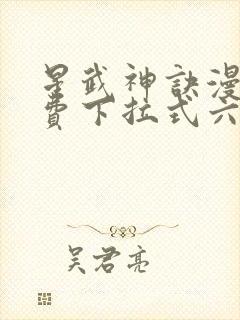 星武神訣漫
費下拉式六
吴君亮